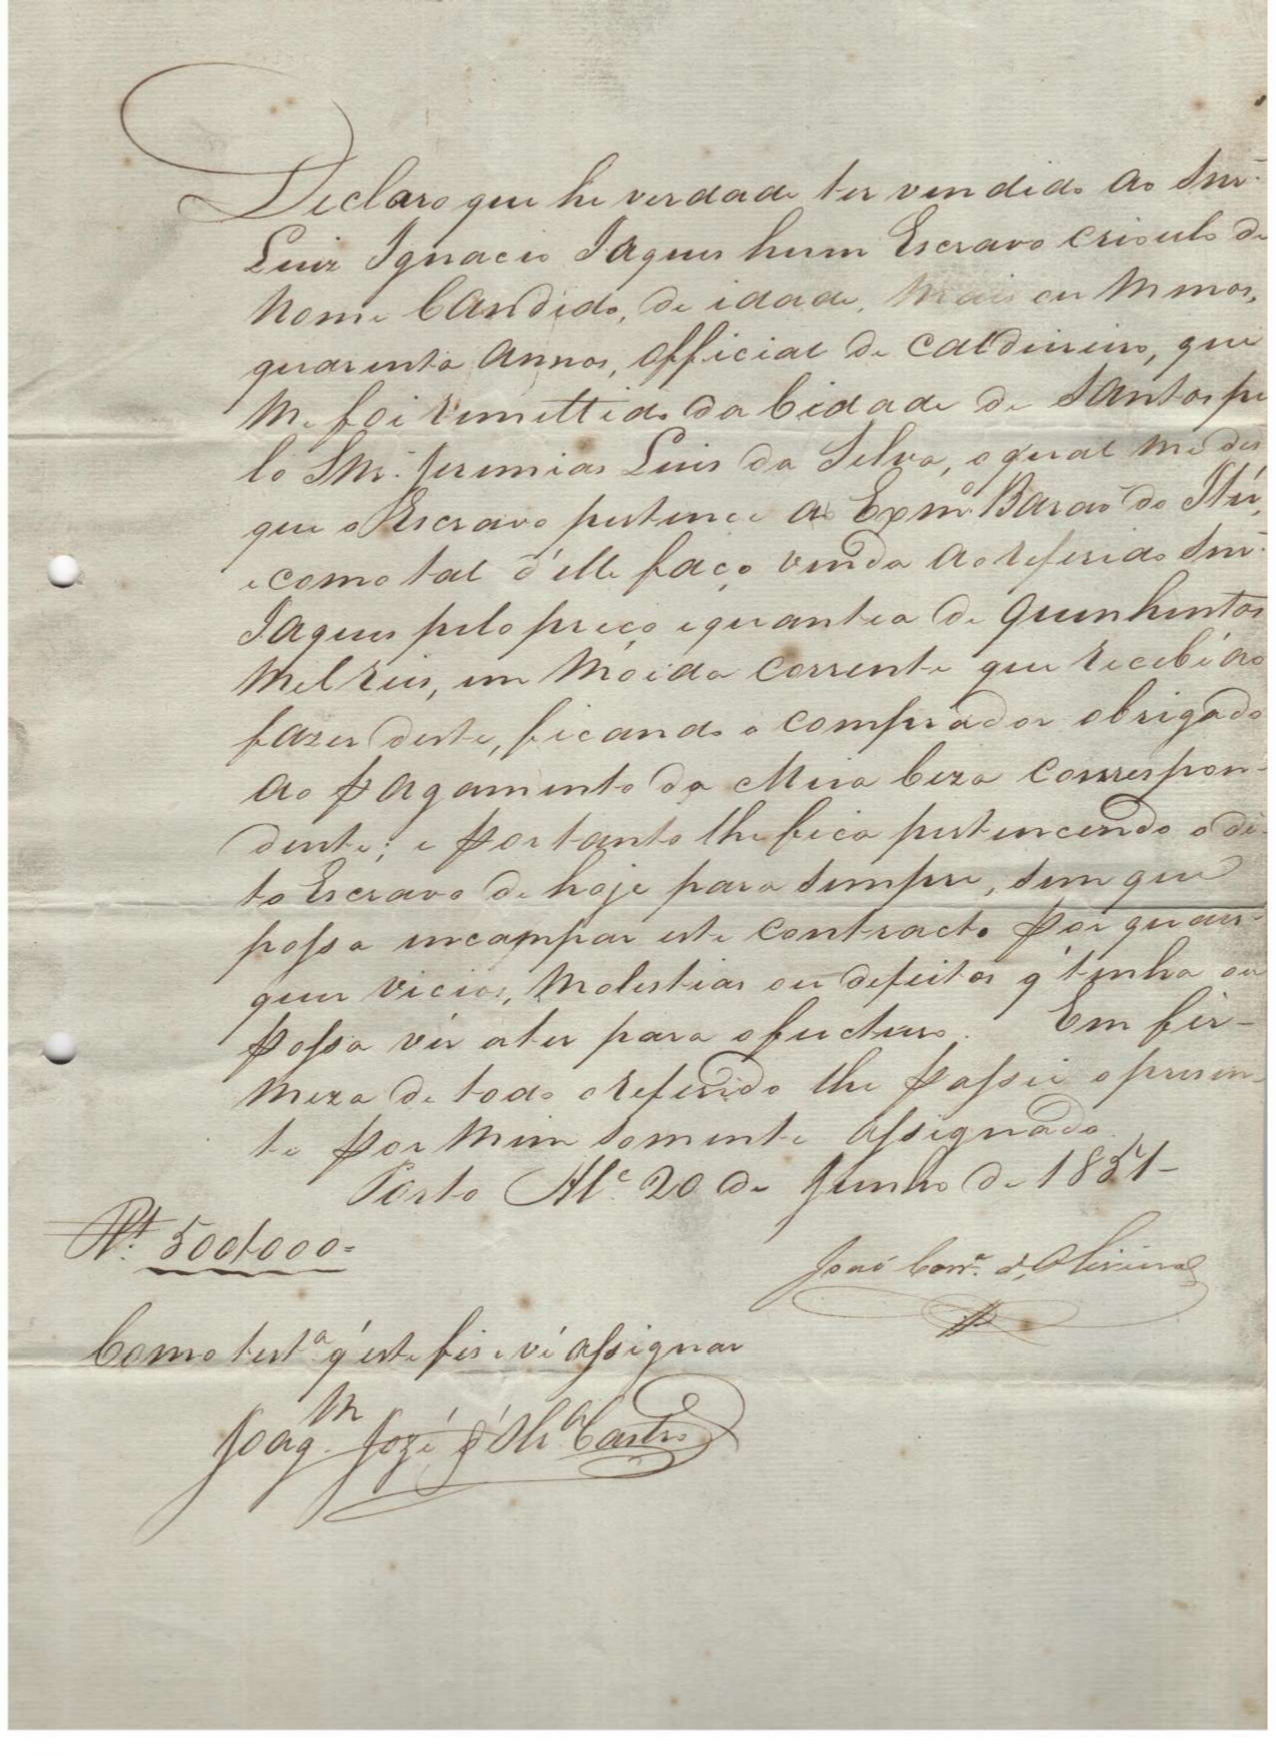 Declaro que he verdade ter vendido ao Snr.
Luiz Ignacio Jaques hum Escravo crioulo de
nome Candido, de idade, mais ou menos,
quarenta annos, official de caldeireiro, que
me foi remettido da Cidade de Santos pe
lo Snr. Jeremias Luis da Silva, o qual me diz
que o Escravo pertence ao Exmo. Barão do Itú,
e como tal d'elle faço venda ao referido Snr.
Jaques pelo preço e quantia de quinhentos
mil reis, em moeda corrente que recebi ao
fazer deste, ficando o comprador obrigado
ao pagamento da Meia Ciza correspon-
dente; e portanto lhe fica pertencendo o di-
to Escravo de hoje para sempre, sem que
possa incampar este contracto por quaes-
quer vicios, molestias ou defeitos q' tenha ou
possa vir a ter para o fucturo. Em fir-
meza de todo o referido lhe passei o presen-
te por mim somente assignado.
Porto Ale. 20 de Junho de 1851-
Rs. 500$000=
João Corra. d'Oliveira
Como testa. q' este fis e vi assignar
Joaqm. José d' Castro